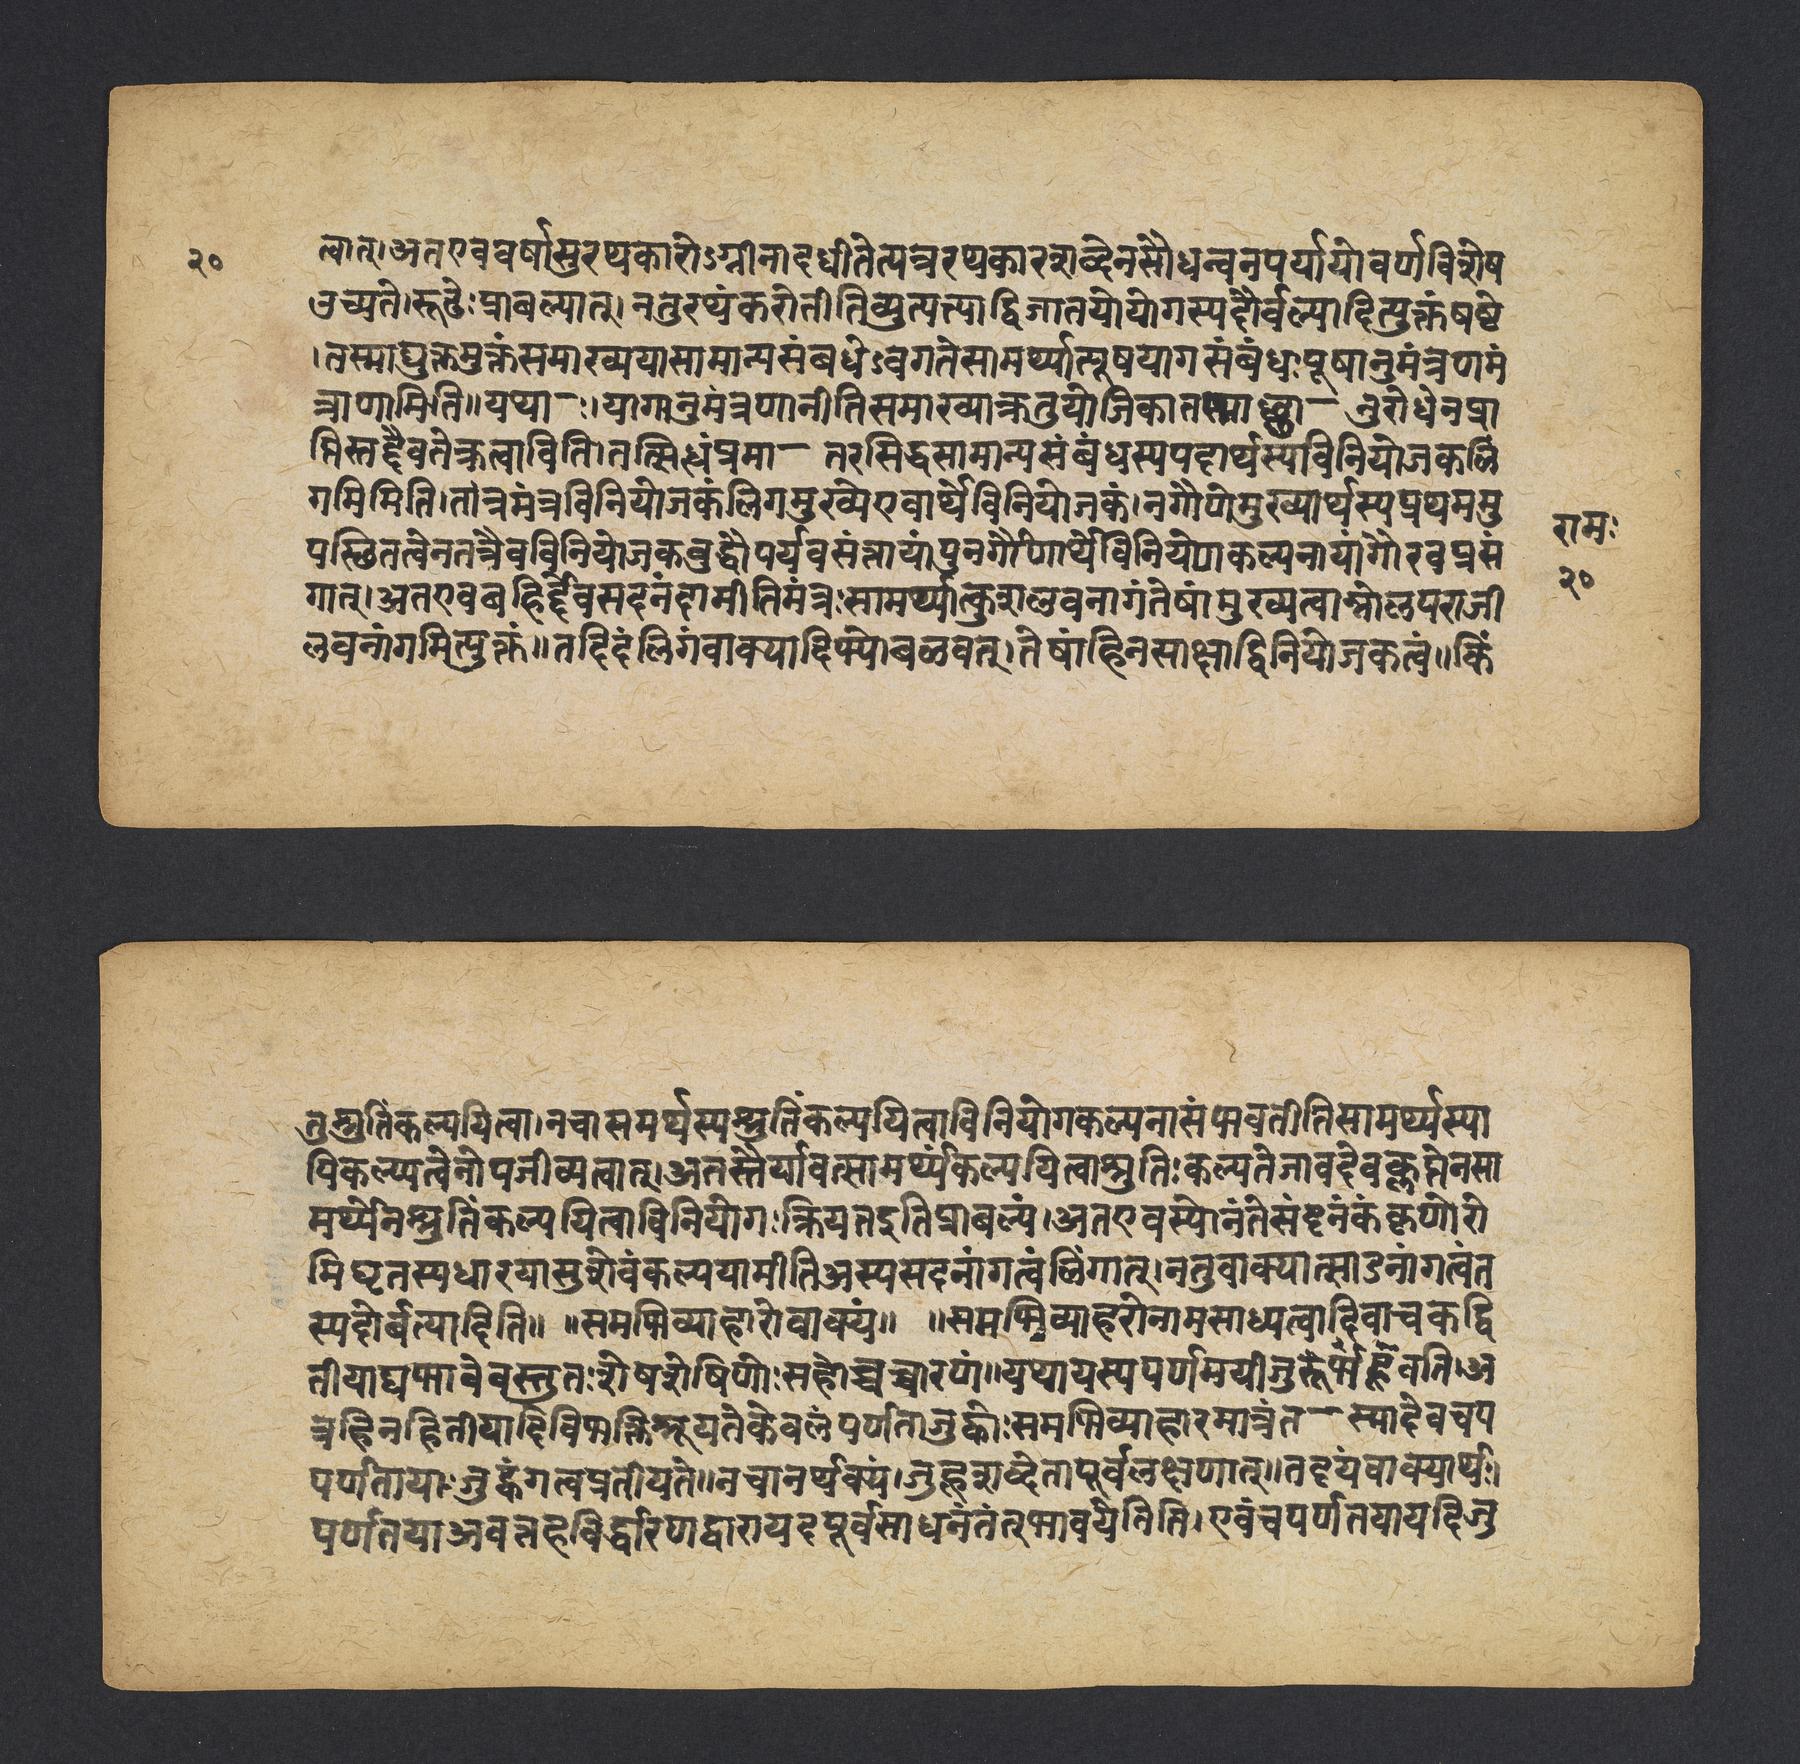 २०
त्वात्। अत एव वर्षासु रथकारोऽग्नीनादधीतेत्यत्र रथकारशब्देन सौधन्वनपर्यायो वर्णविशेष
उच्यते। रूढेः प्राबल्यात्। न तु रथं करोतीति व्युत्पत्त्या द्विजातयो योगस्य दौर्बल्यादित्युक्तं षष्ठे
। तस्माद्युक्तमुक्तं समाख्यया सामान्यसंबंधेऽवगते सामर्थ्यात्पूषयागसंबंधः पूषानुमंत्रणमं
त्राणामिति॥ यथा–ः। यागानुमंत्रणानीति समाख्या क्रतुयोजिका त – नुरोधेन प्रा
प्तिस्तद्दैवते क्रत्वाविति। तत्सिध्धं प्रमा – तरसिद्धसामान्यसंबंधस्य पदार्थस्य विनियोजकलिं
गमिमिति। तांत्रमंत्रविनियोजकं लिंगमुख्ये एवार्थे विनियोजकं। न गौणे मुख्यार्थस्य प्रथममु
पस्छितत्वेन तत्रैव विनियोजकबुद्धौ पर्यवसंन्नायां पुनर्गौणार्थे विनियोगाकल्पनायां गौरवप्रसं
गात्। अत एव बर्हिर्द्देवसदनं दामीति मंत्रः सामर्थ्यात्कुशलवनांगं तेषां मुख्यत्वान्नोलपराजी
लवनांगमित्युक्तं॥ तदिदं लिंगं वाक्यादिभ्यो बळवत्। तेषां हि न साक्षाद्विनियोजकत्वं॥ किं
रामः
२०
तु श्रुतिं कल्पयित्वा। न चासमर्थस्य श्रुतिं कल्पयित्वा विनियोगकल्पना संभवतीति सामर्थ्यस्या
पि कल्प्यत्वेनोपजीव्यत्वात्। अतस्तैर्यावत्सामर्थ्यं कल्पयित्वा श्रुतिः कल्पते जावदेव कॢप्तेन सा
मर्थ्येन श्रुतिं कल्पयित्वा विनियोगः क्रियत इति प्राबल्यं। अत एव स्योनं ते सदनं कं कृणोरो
मि घृतस्य धारया सुशेवं कल्पयामीति अस्य सदनांगत्वं लिंगात्। न तु वाक्यात्साऽनांगत्वं त
स्य दोर्बत्यादिति॥ ॥समभिव्याहारो वाक्यं॥ ॥समभिव्याहरो नाम साध्यत्वादिवाचकद्वि
तीयाद्यभावे वस्तुतः शेषशेषिणोः सहोच्चच्चारणं॥ यथा यस्य पर्णमयी जुहूर्भवति। अ
त्र हि न द्वितीयादिविभक्तिः श्रूयते केवलं पर्णताजुह्वोः समभिव्याहारमात्रं त – स्मादेव च प
पर्णतायाः जुह्वंगत्वप्रतीयते॥ न चानर्थक्यं। जुहूशब्देतापूर्वलक्षणात्॥ तदयं वाक्यार्थः।
पर्णतया अवत्तहविर्द्धारणद्वारा यदपूर्वसाधनं तं त् भावयेतिति। एवं च पर्णतया यदि जु